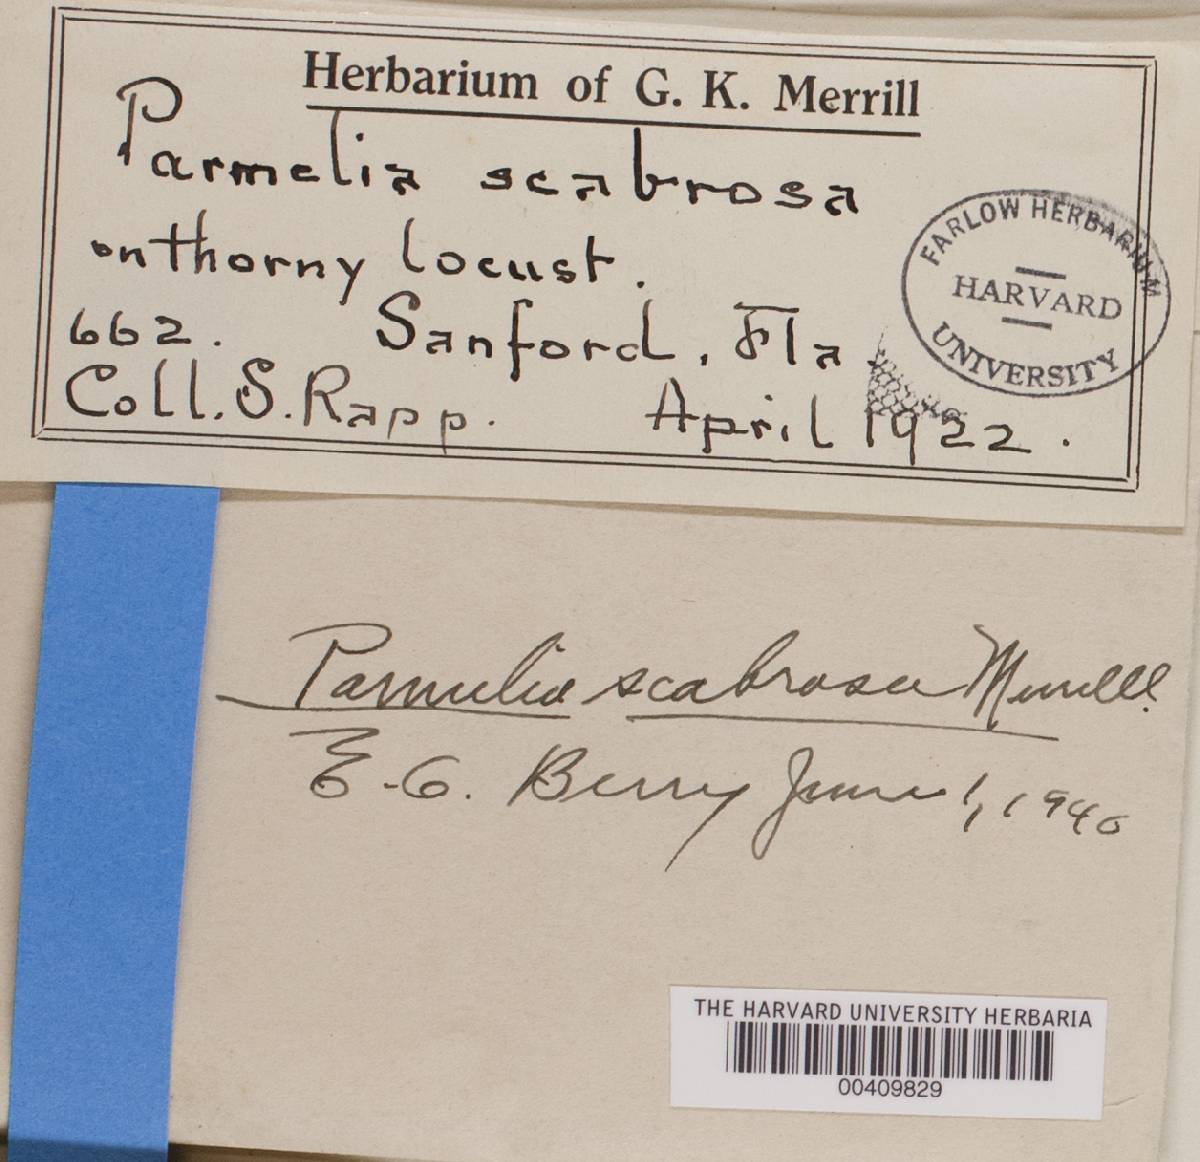 Herbarium of G. K. Merrill
Parmelia scabrosa
on thorny locust.
662. Sanford, Fla.
Coll. S. Rapp. April 1922.
FARLOW HERBARIUM
HARVARD
UNIVERSITY
Parmelia scabrosa Merrill
E. C. Berry June 1, 1940
THE HARVARD UNIVERSITY HERBARIA
00409829